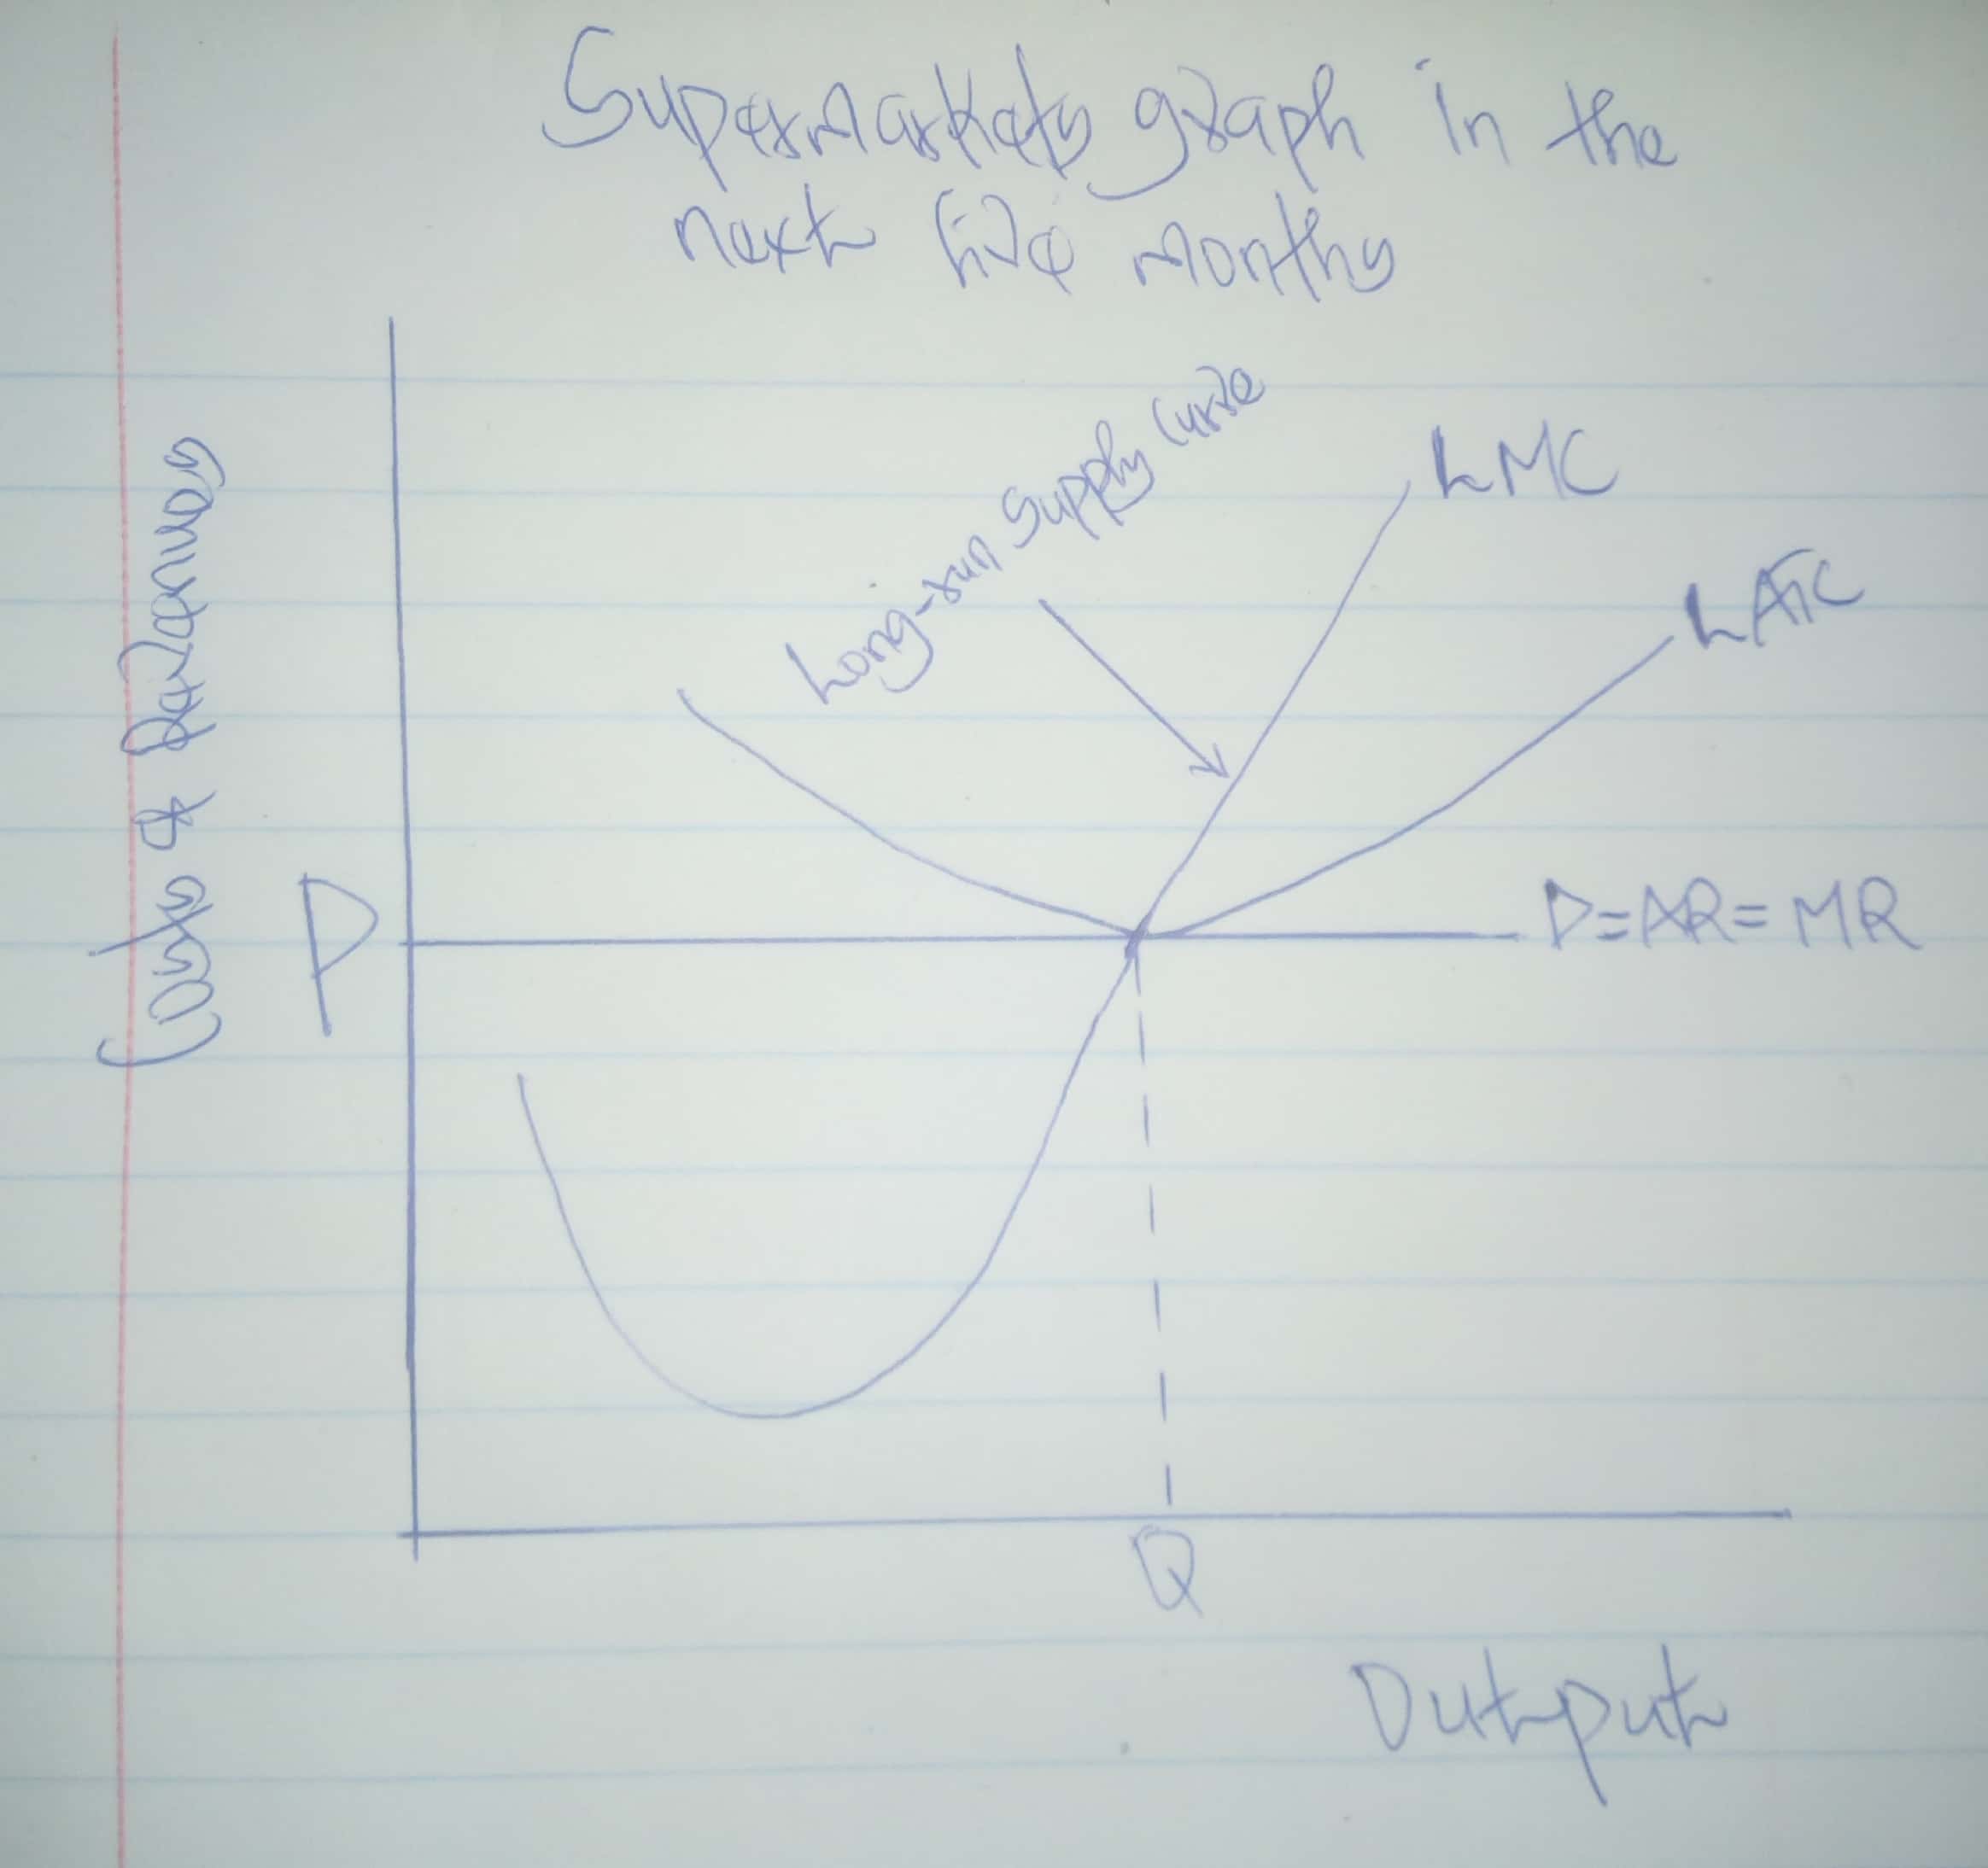 Supermarkets graph in the
next five months
Long-run Supply Curve
LMC
LATC
Costs & Revenues
P
D=AR=MR
Q
Output